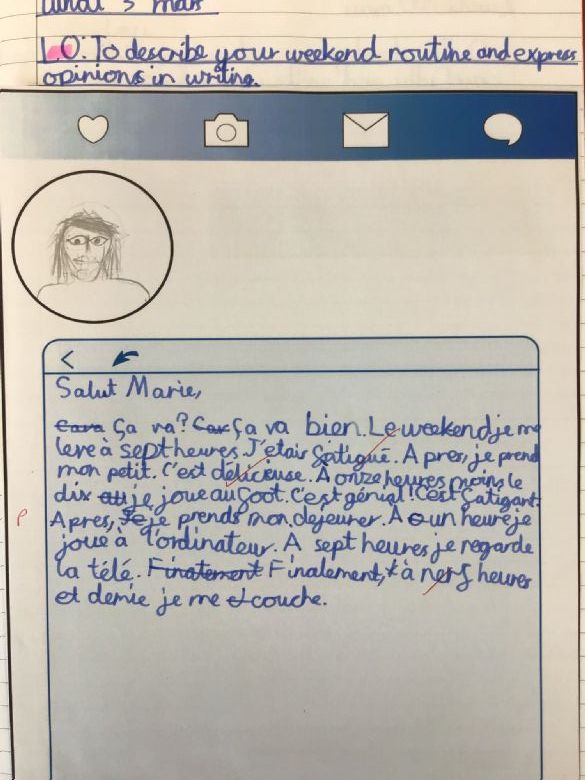 lundi 3 mars
L.O: To describe your weekend routine and express
opinions in writing.
Salut Marie,
Cava Ça va? Ca Ça va bien. Le weekend je me
leve à sept heures. J'etais fatigué. A pres, je prend
mon petit. C'est délicieuse. À onze heures moins le
dix au je joue au foot. C'est génial! C'est fatigant.
P
Apres, Je je prends mon dejeuner. À un heure je
joue à l'ordinateur. A sept heures je regarde
la télé. Finatement Finalement, à nerf heures
et demie je me couche.